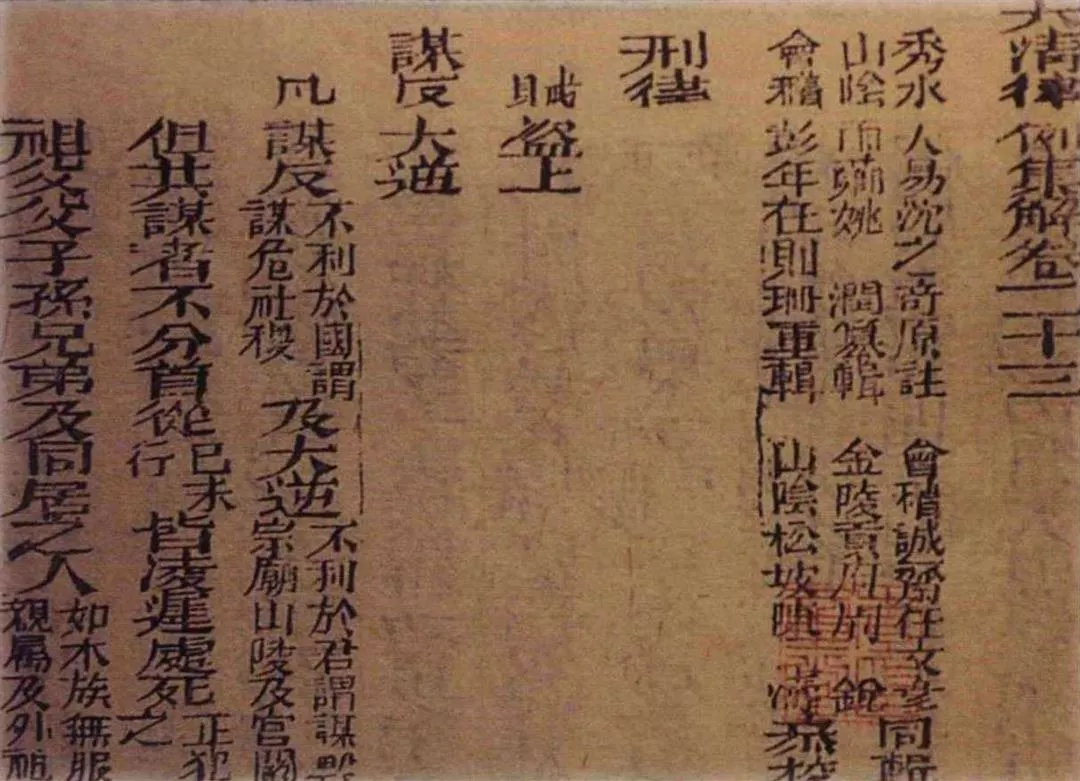 大清律例集解卷二十三
秀水 人易沈之奇原註 會稽誠齋任文
山陰 姚 潤纂輯 金陵黃
會稽 彭年任則珊重輯 山陰松坡
刑律
賊盜上
謀反大逆
凡謀反不利於國謂謀危社稷及大逆不利於君謂謀毀宗廟山陵及宮闕
但共謀者不分首從已未行皆凌遲處死正犯之
祖父父子孫兄弟及同居之人如本族無服親屬及外祖